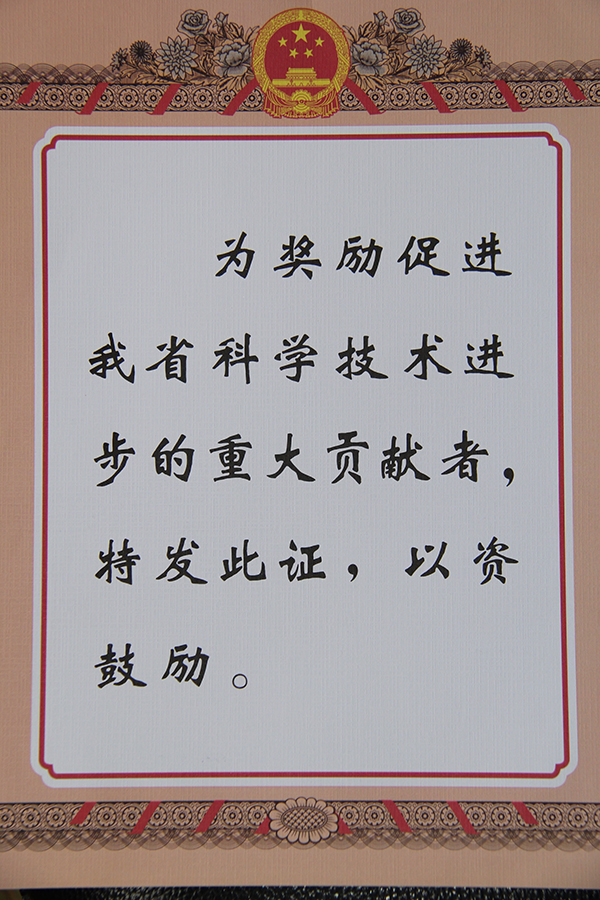 为奖励促进
我省科学技术进
步的重大贡献者，
特发此证，以资
鼓励。